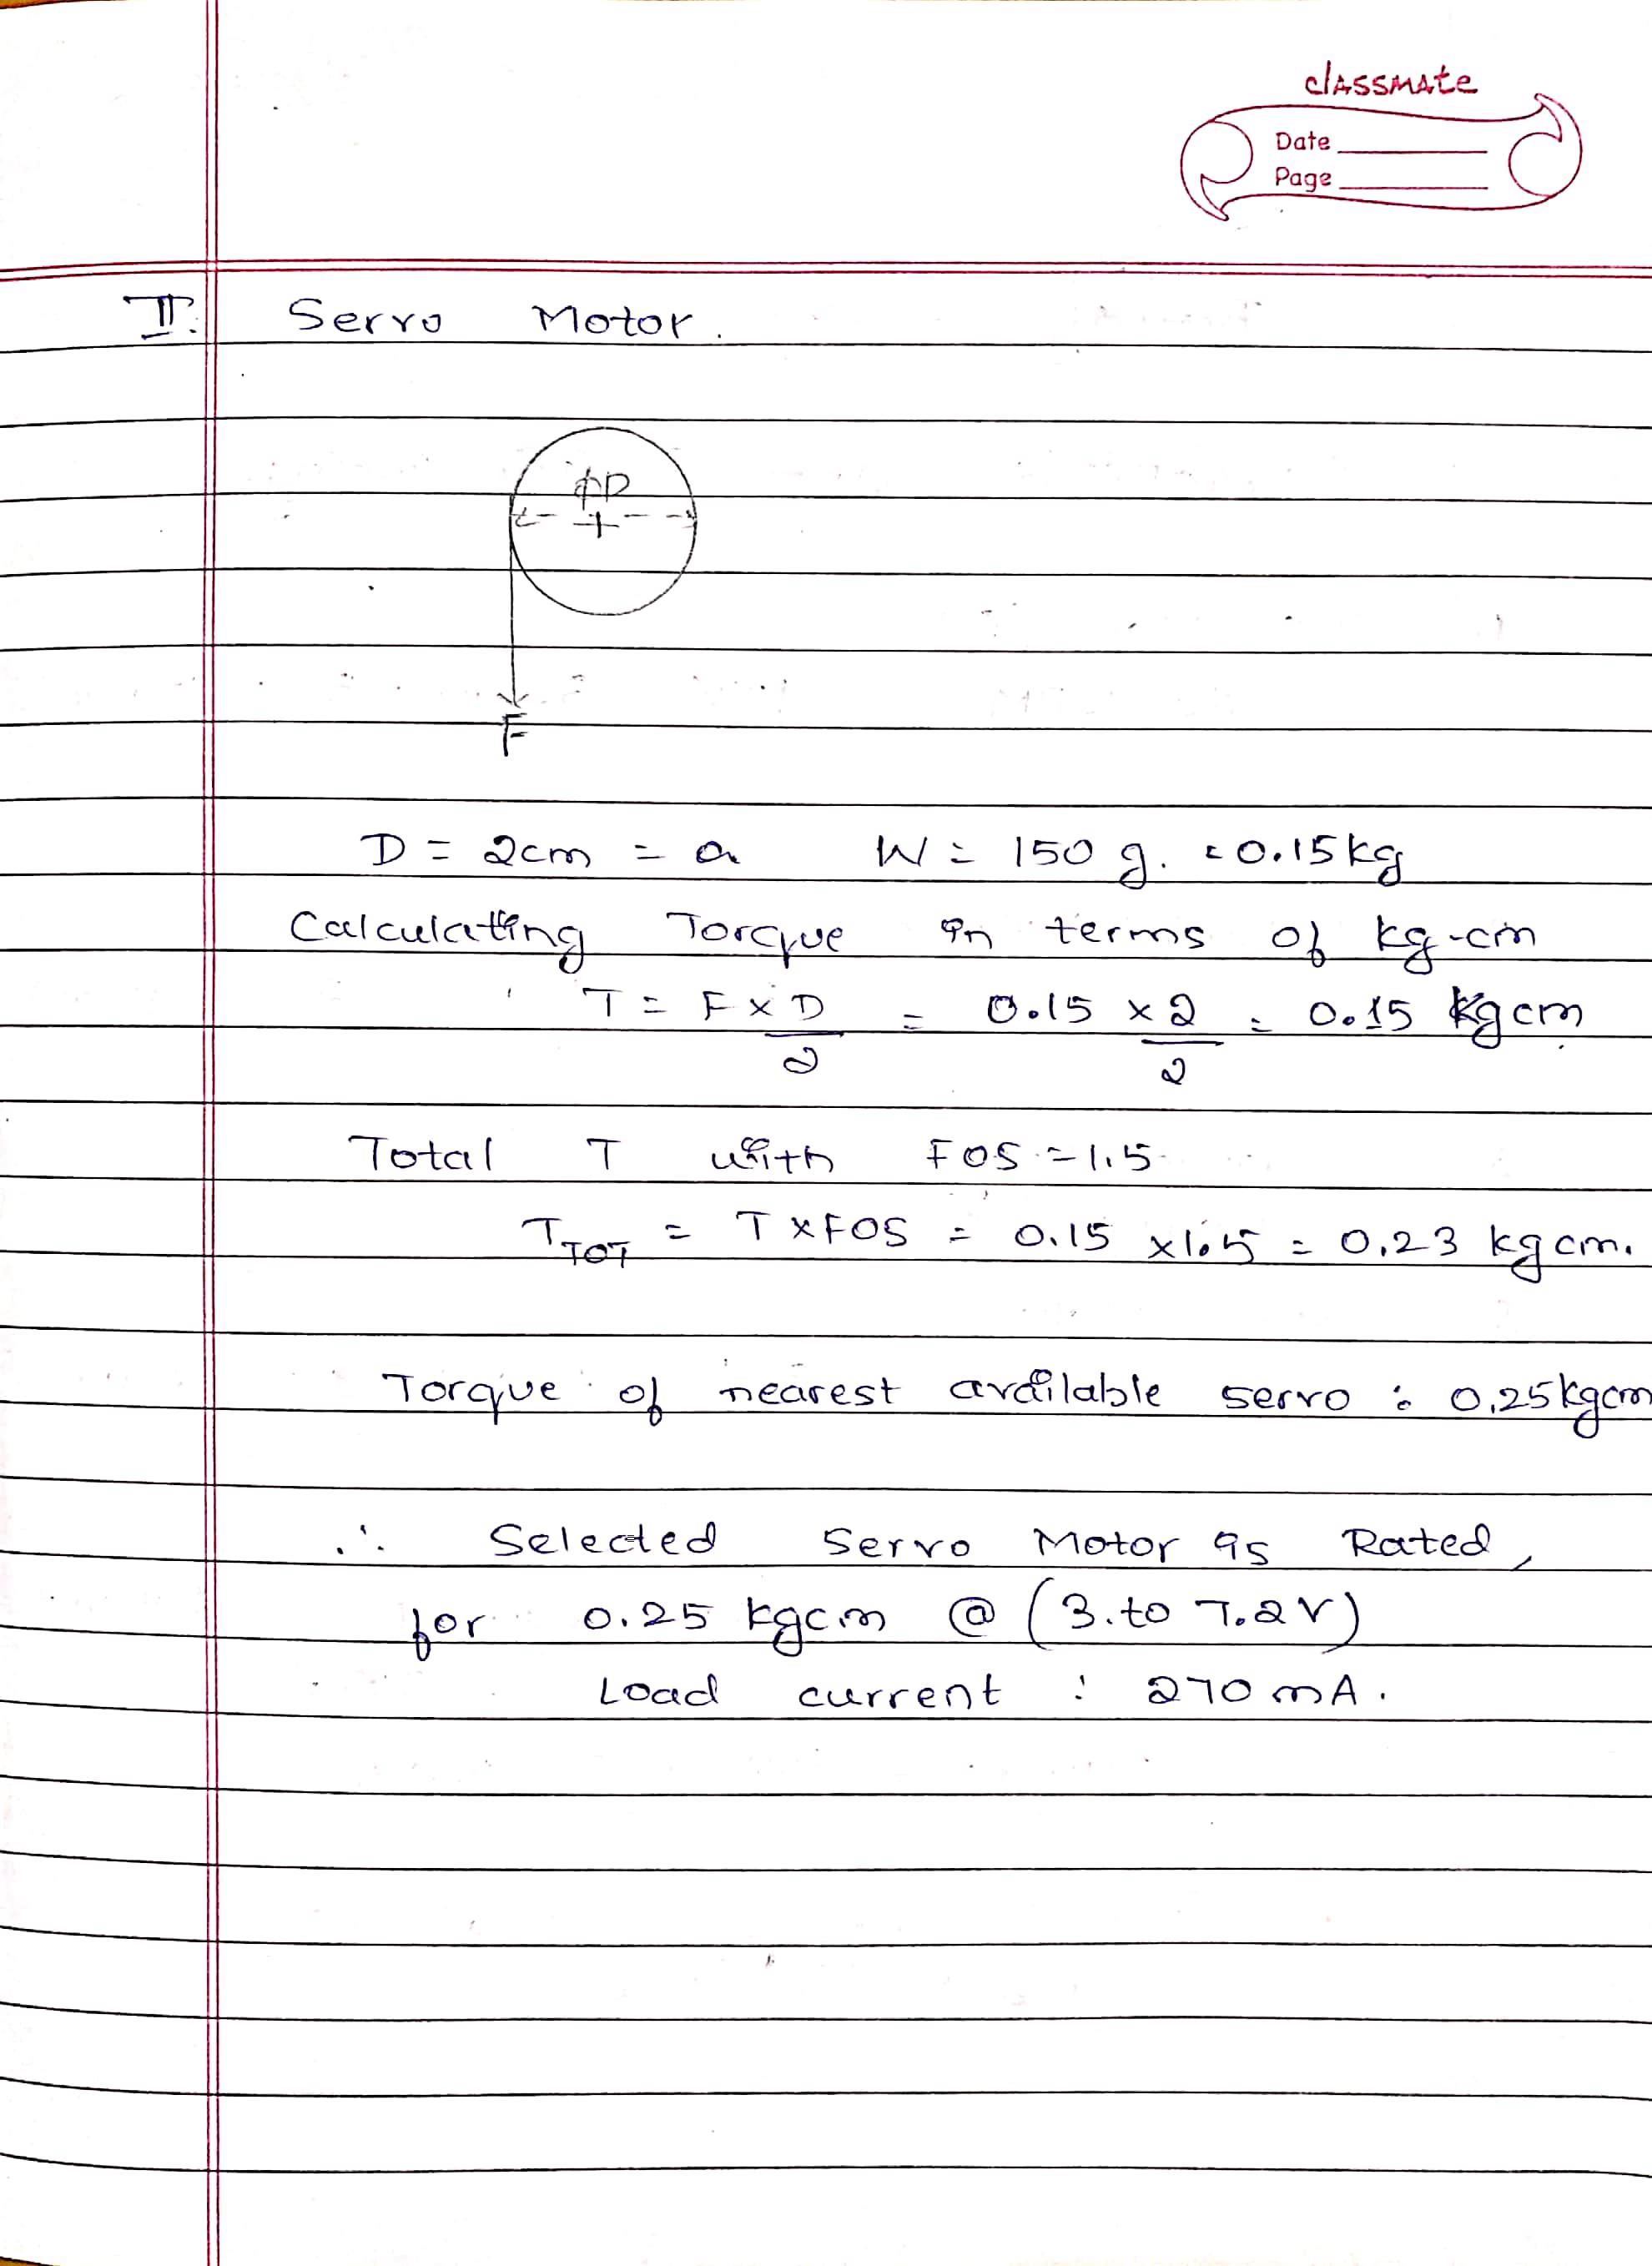 classmate
Date
Page
II. Servo Motor.
φD
F
D = 2cm = a W = 150 g. = 0.15kg
Calculating Torque in terms of kg-cm
T = F x D/2 = 0.15 x 2/2 = 0.15 kgcm
Total T with FOS = 1.5
T_TOT = T x FOS = 0.15 x 1.5 = 0.23 kgcm.
Torque of nearest available servo : 0.25kgcm
∴ Selected Servo Motor is Rated,
for 0.25 kgcm @ (3. to 7.2V)
Load current : 270 mA.